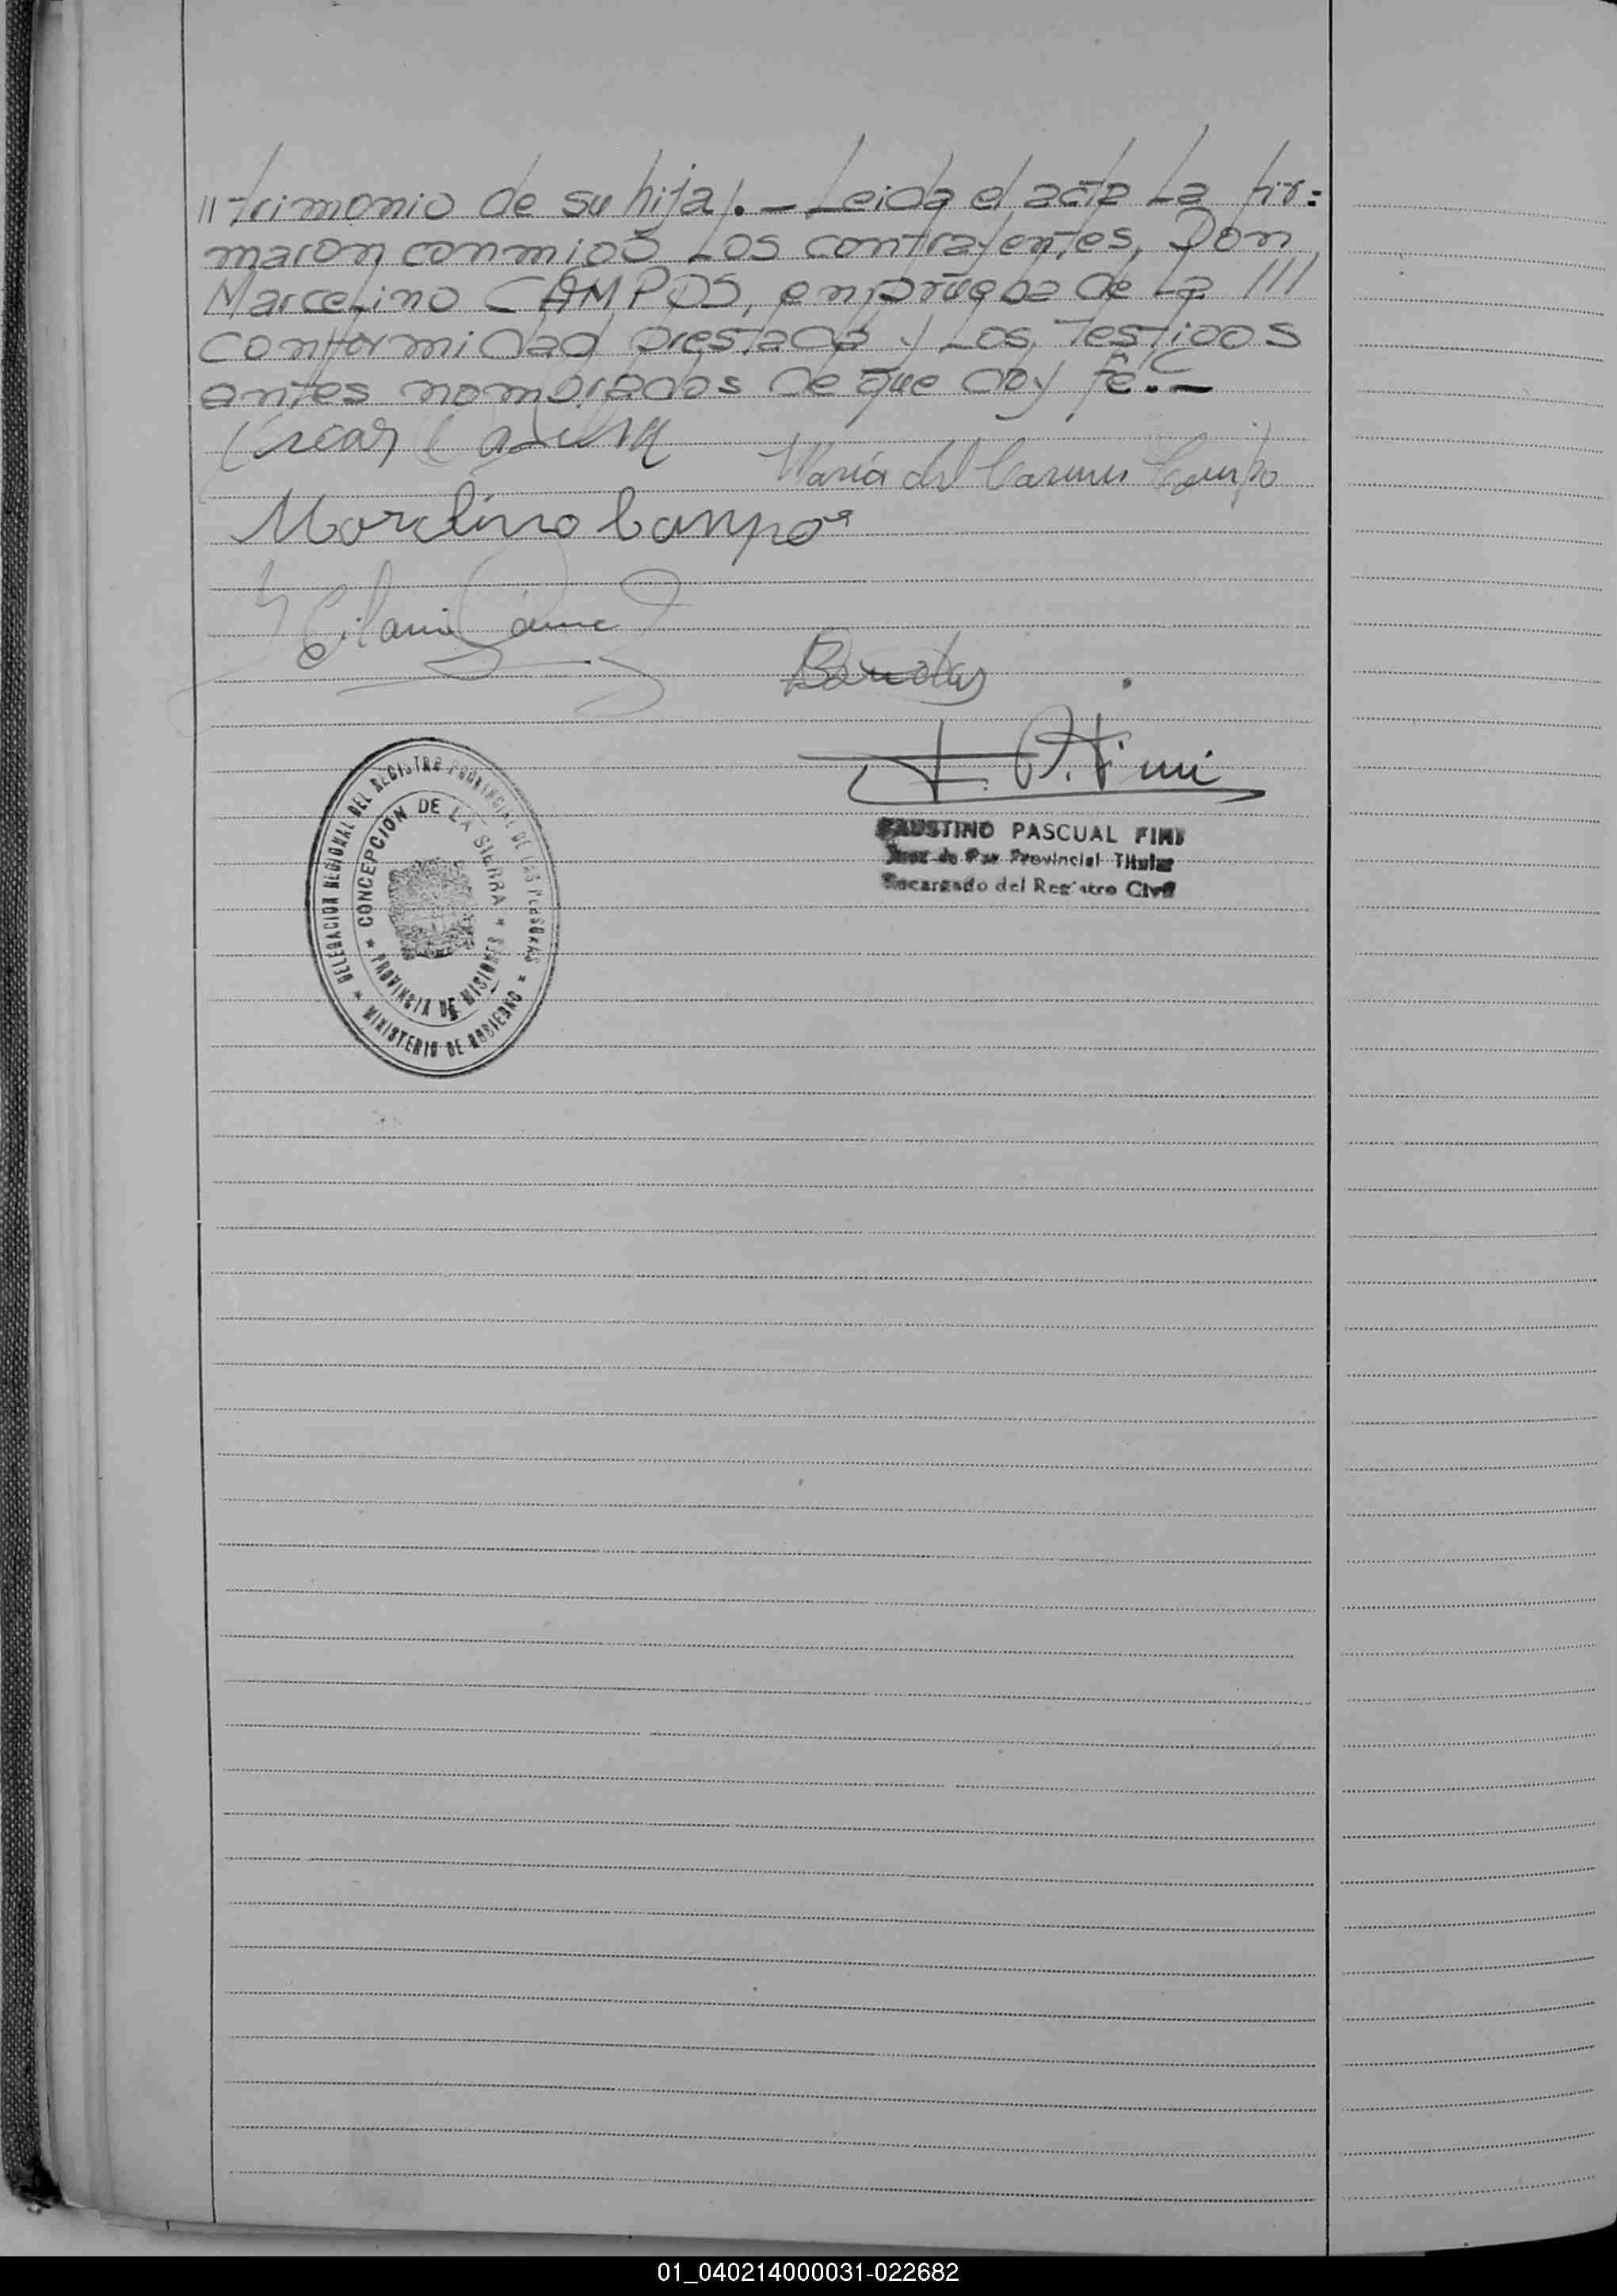 "trimonio de su hija/.- Leida el acta La fir=
maron conmigo Los contrayentes, Don
Marcelino CAMPOS, en prueba de La ///
conformidad prestada y Los Testigos
antes nombrados de que doy fé.-
Oscar
María del Carmen Campo
Marcelino Campos
F. P. Fini
FAUSTINO PASCUAL FINI
Juez de Paz Provincial Titular
Encargado del Registro Civil
DELEGACION REGIONAL DEL REGISTRO PROVINCIAL DE LAS PERSONAS
* MINISTERIO DE GOBIERNO *
* CONCEPCION DE LA SIERRA *
PROVINCIA DE MISIONES
01_040214000031-022682